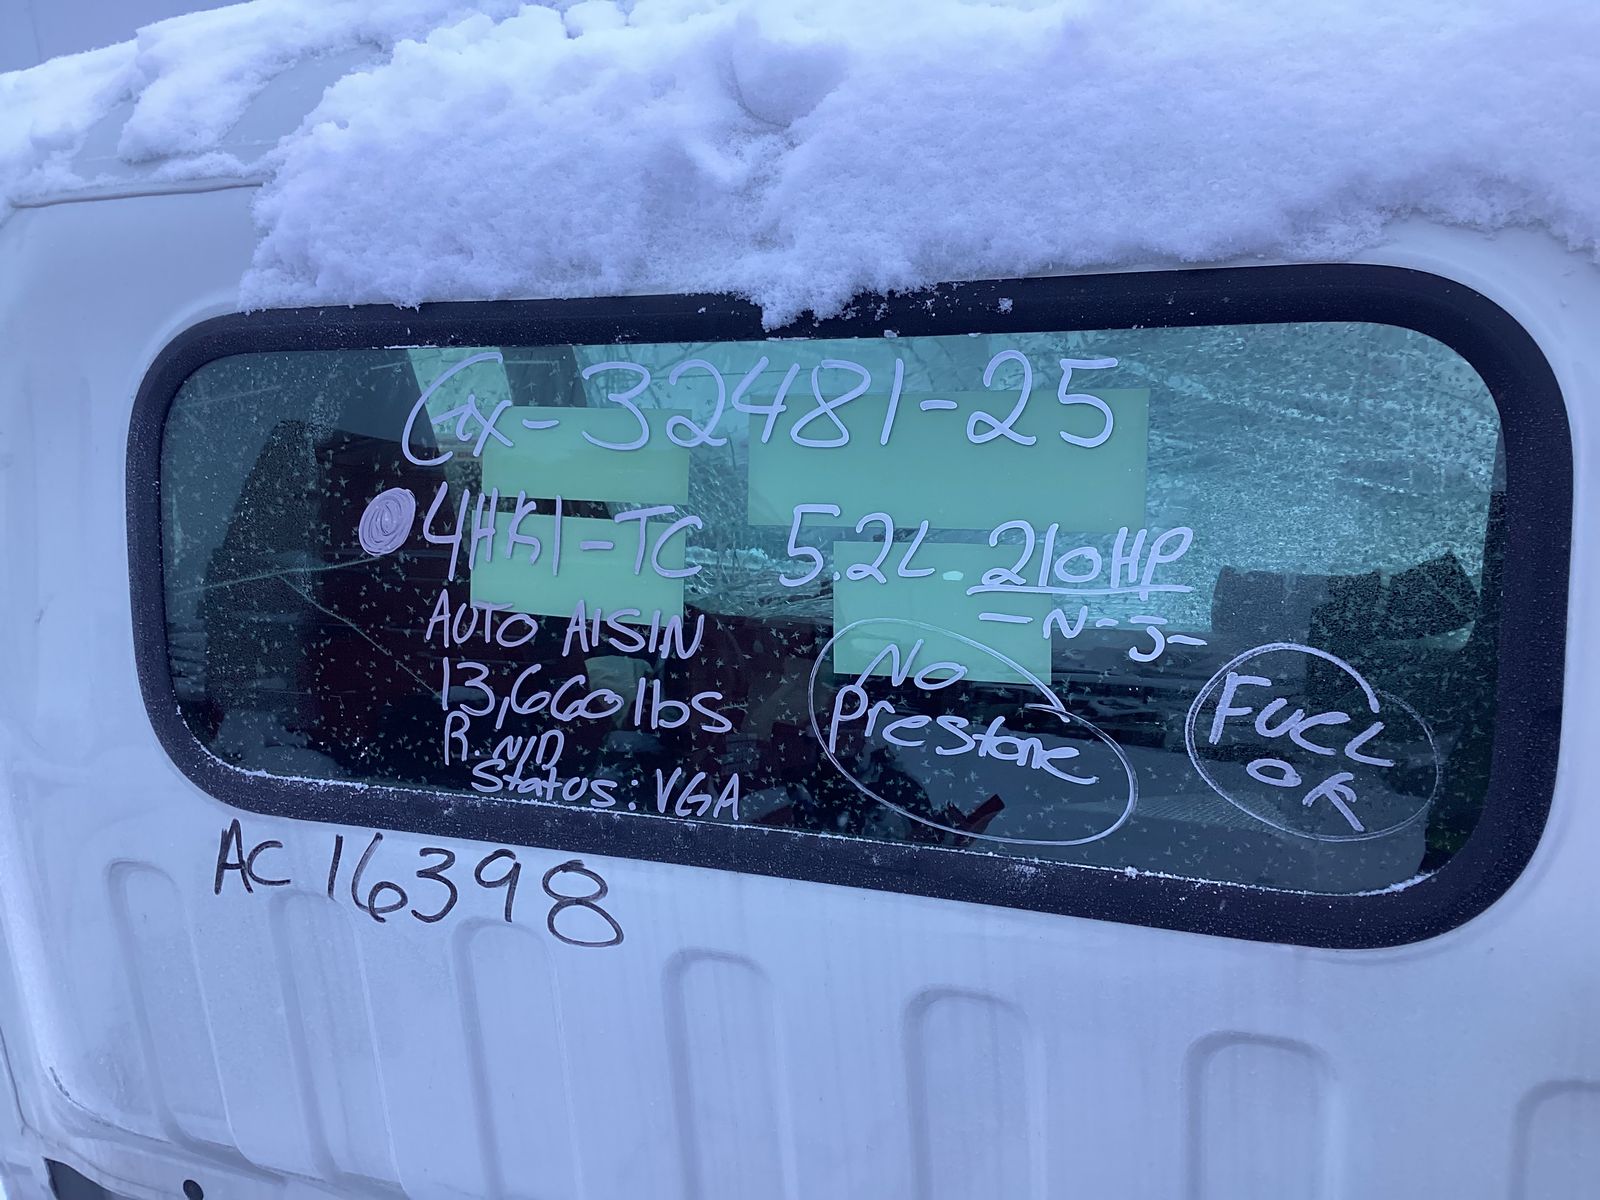 Gx-32481-25
4HK1-TC 5.2L 210HP
-N-J-
AUTO AISIN
13,660lbs
R. N/D
Status: VGA
No
Prestone
FUEL
OK
AC 16398